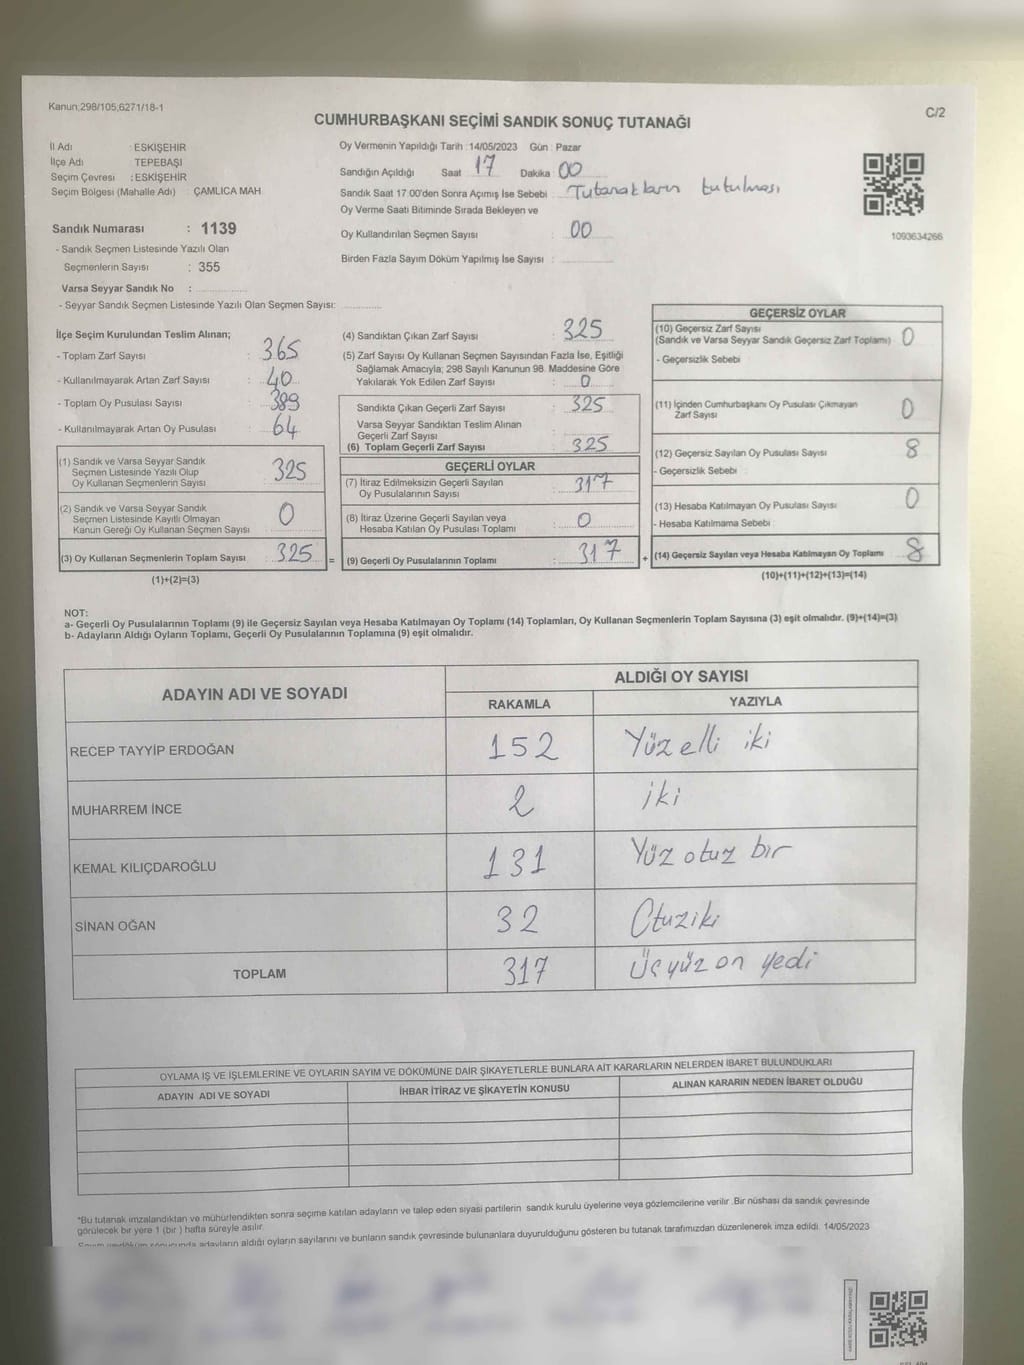 Kanun;298/105,6271/18-1
C/2
CUMHURBAŞKANI SEÇİMİ SANDIK SONUÇ TUTANAĞI
İl Adı : ESKİŞEHİR
İlçe Adı TEPEBAŞI
Seçim Çevresi : ESKİŞEHİR
Seçim Bölgesi (Mahalle Adı) : ÇAMLICA MAH.
Sandık Numarası : 1139
- Sandık Seçmen Listesinde Yazılı Olan
Seçmenlerin Sayısı : 355
Varsa Seyyar Sandık No :
- Seyyar Sandık Seçmen Listesinde Yazılı Olan Seçmen Sayısı:
Oy Vermenin Yapıldığı Tarih :14/05/2023 Gün : Pazar
Sandığın Açıldığı Saat 17 Dakika 00
Sandık Saat 17.00'den Sonra Açımış İse Sebebi : Tutanakların tutulması
Oy Verme Saati Bitiminde Sırada Bekleyen ve
Oy Kullandırılan Seçmen Sayısı : 00
Birden Fazla Sayım Döküm Yapılmış İse Sayısı :
1093634266
İlçe Seçim Kurulundan Teslim Alınan;
- Toplam Zarf Sayısı : 365
- Kullanılmayarak Artan Zarf Sayısı : 40
- Toplam Oy Pusulası Sayısı : 389
- Kullanılmayarak Artan Oy Pusulası : 64
(1) Sandık ve Varsa Seyyar Sandık
Seçmen Listesinde Yazılı Olup
Oy Kullanan Seçmenlerin Sayısı 325
(2) Sandık ve Varsa Seyyar Sandık
Seçmen Listesinde Kayıtlı Olmayan
Kanun Gereği Oy Kullanan Seçmen Sayısı 0
(3) Oy Kullanan Seçmenlerin Toplam Sayısı 325 =
(1)+(2)=(3)
(4) Sandıktan Çıkan Zarf Sayısı : 325
(5) Zarf Sayısı Oy Kullanan Seçmen Sayısından Fazla İse, Eşitliği
Sağlamak Amacıyla; 298 Sayılı Kanunun 98. Maddesine Göre
Yakılarak Yok Edilen Zarf Sayısı : 0
Sandıkta Çıkan Geçerli Zarf Sayısı : 325
Varsa Seyyar Sandıktan Teslim Alınan
Geçerli Zarf Sayısı
(6) Toplam Geçerli Zarf Sayısı : 325
GEÇERLİ OYLAR
(7) İtiraz Edilmeksizin Geçerli Sayılan
Oy Pusulalarının Sayısı : 317
(8) İtiraz Üzerine Geçerli Sayılan veya
Hesaba Katılan Oy Pusulası Toplamı : 0
(9) Geçerli Oy Pusulalarının Toplamı : 317 +
GEÇERSİZ OYLAR
(10) Geçersiz Zarf Sayısı
(Sandık ve Varsa Seyyar Sandık Geçersiz Zarf Toplamı) 0
- Geçersizlik Sebebi
(11) İçinden Cumhurbaşkanı Oy Pusulası Çıkmayan
Zarf Sayısı 0
(12) Geçersiz Sayılan Oy Pusulası Sayısı 8
- Geçersizlik Sebebi
(13) Hesaba Katılmayan Oy Pusulası Sayısı 0
- Hesaba Katılmama Sebebi
(14) Geçersiz Sayılan veya Hesaba Katılmayan Oy Toplamı 8
(10)+(11)+(12)+(13)=(14)
NOT:
a- Geçerli Oy Pusulalarının Toplamı (9) ile Geçersiz Sayılan veya Hesaba Katılmayan Oy Toplamı (14) Toplamları, Oy Kullanan Seçmenlerin Toplam Sayısına (3) eşit olmalıdır. (9)+(14)=(3)
b- Adayların Aldığı Oyların Toplamı, Geçerli Oy Pusulalarının Toplamına (9) eşit olmalıdır.
ADAYIN ADI VE SOYADI ALDIĞI OY SAYISI
RAKAMLA YAZIYLA
RECEP TAYYİP ERDOĞAN 152 Yüz elli iki
MUHARREM İNCE 2 iki
KEMAL KILIÇDAROĞLU 131 Yüz otuz bir
SİNAN OĞAN 32 Otuziki
TOPLAM 317 Üçyüz on yedi
OYLAMA İŞ VE İŞLEMLERİNE VE OYLARIN SAYIM VE DÖKÜMÜNE DAİR ŞİKAYETLERLE BUNLARA AİT KARARLARIN NELERDEN İBARET BULUNDUKLARI
ADAYIN ADI VE SOYADI İHBAR İTİRAZ VE ŞİKAYETİN KONUSU ALINAN KARARIN NEDEN İBARET OLDUĞU
*Bu tutanak imzalandıktan ve mühürlendikten sonra seçime katılan adayların ve talep eden siyasi partilerin sandık kurulu üyelerine veya gözlemcilerine verilir .Bir nüshası da sandık çevresinde
görülecek bir yere 1 (bir ) hafta süreyle asılır.
adayların aldığı oyların sayılarını ve bunların sandık çevresinde bulunanlara duyurulduğunu gösteren bu tutanak tarafımızdan düzenlenerek imza edildi. 14/05/2023